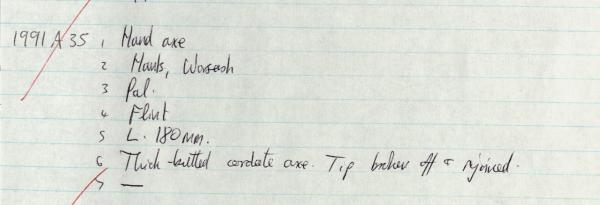 1991 A 35 1 Hand axe
2 Hants, Warsash
3 Pal.
4 Flint
5 L. 180mm.
6 Thick-butted cordate axe. Tip broken off & rejoined.
7 —